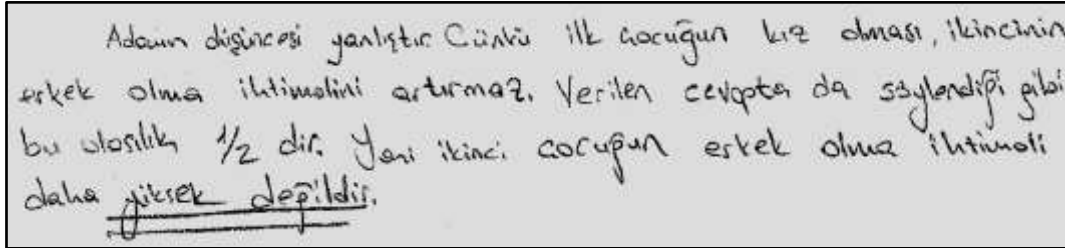 Adamın düşüncesi yanlıştır Çünkü ilk çocuğun kız olması, ikincinin
erkek olma ihtimalini artırmaz. Verilen cevapta da söylendiği gibi
bu olasılık 1/2 dir. Yani ikinci çocuğun erkek olma ihtimali
daha yüksek değildir.